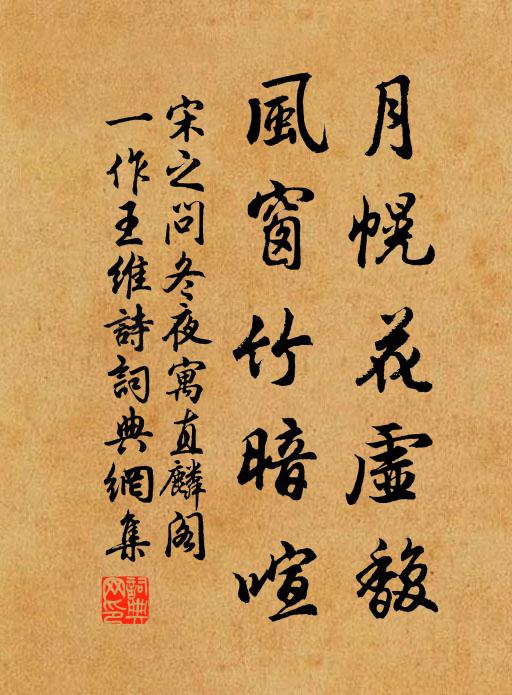 月幌花虛馥
風窗竹暗喧
宋之問冬夜寓直麟閣
一作王維詩詞典網集
詞典網印